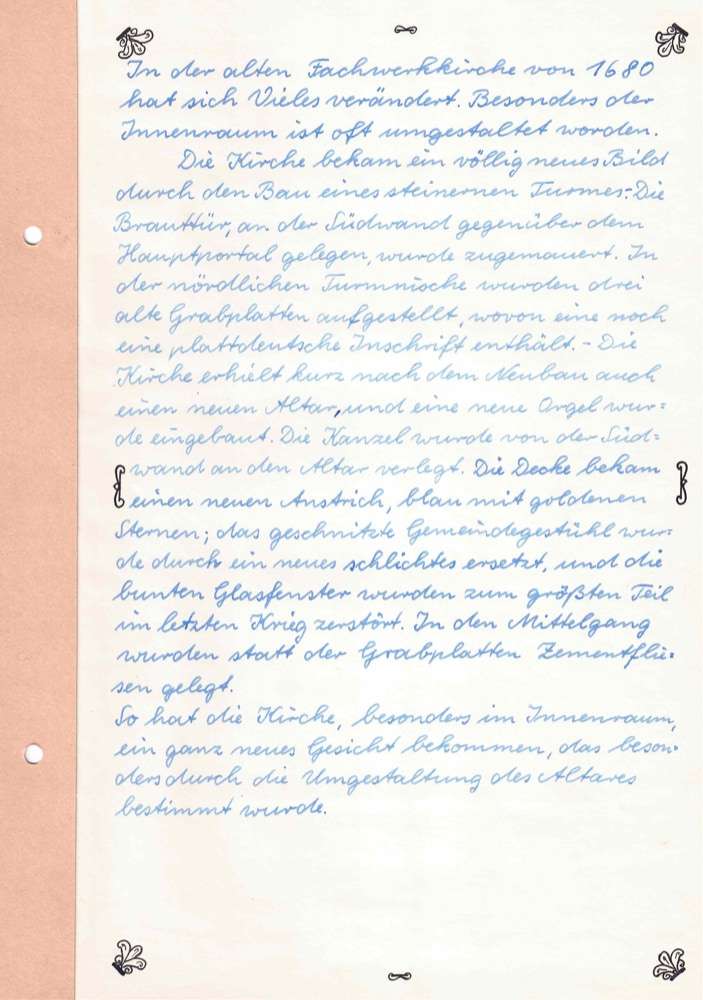 In der alten Fachwerkkirche von 1680
hat sich Vieles verändert. Besonders der
Innenraum ist oft umgestaltet worden.
Die Kirche bekam ein völlig neues Bild
durch den Bau eines steinernen Turmes.- Die
Brauttür, an der Südwand gegenüber dem
Hauptportal gelegen, wurde zugemauert. In
der nördlichen Turmnische wurden drei
alte Grabplatten aufgestellt, wovon eine noch
eine plattdeutsche Inschrift enthält. - Die
Kirche erhielt kurz nach dem Neubau auch
einen neuen Altar, und eine neue Orgel wur=
de eingebaut. Die Kanzel wurde von der Süd=
wand an den Altar verlegt. Die Decke bekam
einen neuen Anstrich, blau mit goldenen
Sternen; das geschnitzte Gemeindegestühl wur=
de durch ein neues schlichtes ersetzt, und die
bunten Glasfenster wurden zum größten Teil
im letzten Krieg zerstört. In den Mittelgang
wurden statt der Grabplatten Zementflie=
sen gelegt.
So hat die Kirche, besonders im Innenraum,
ein ganz neues Gesicht bekommen, das beson=
ders durch die Umgestaltung des Altares
bestimmt wurde.